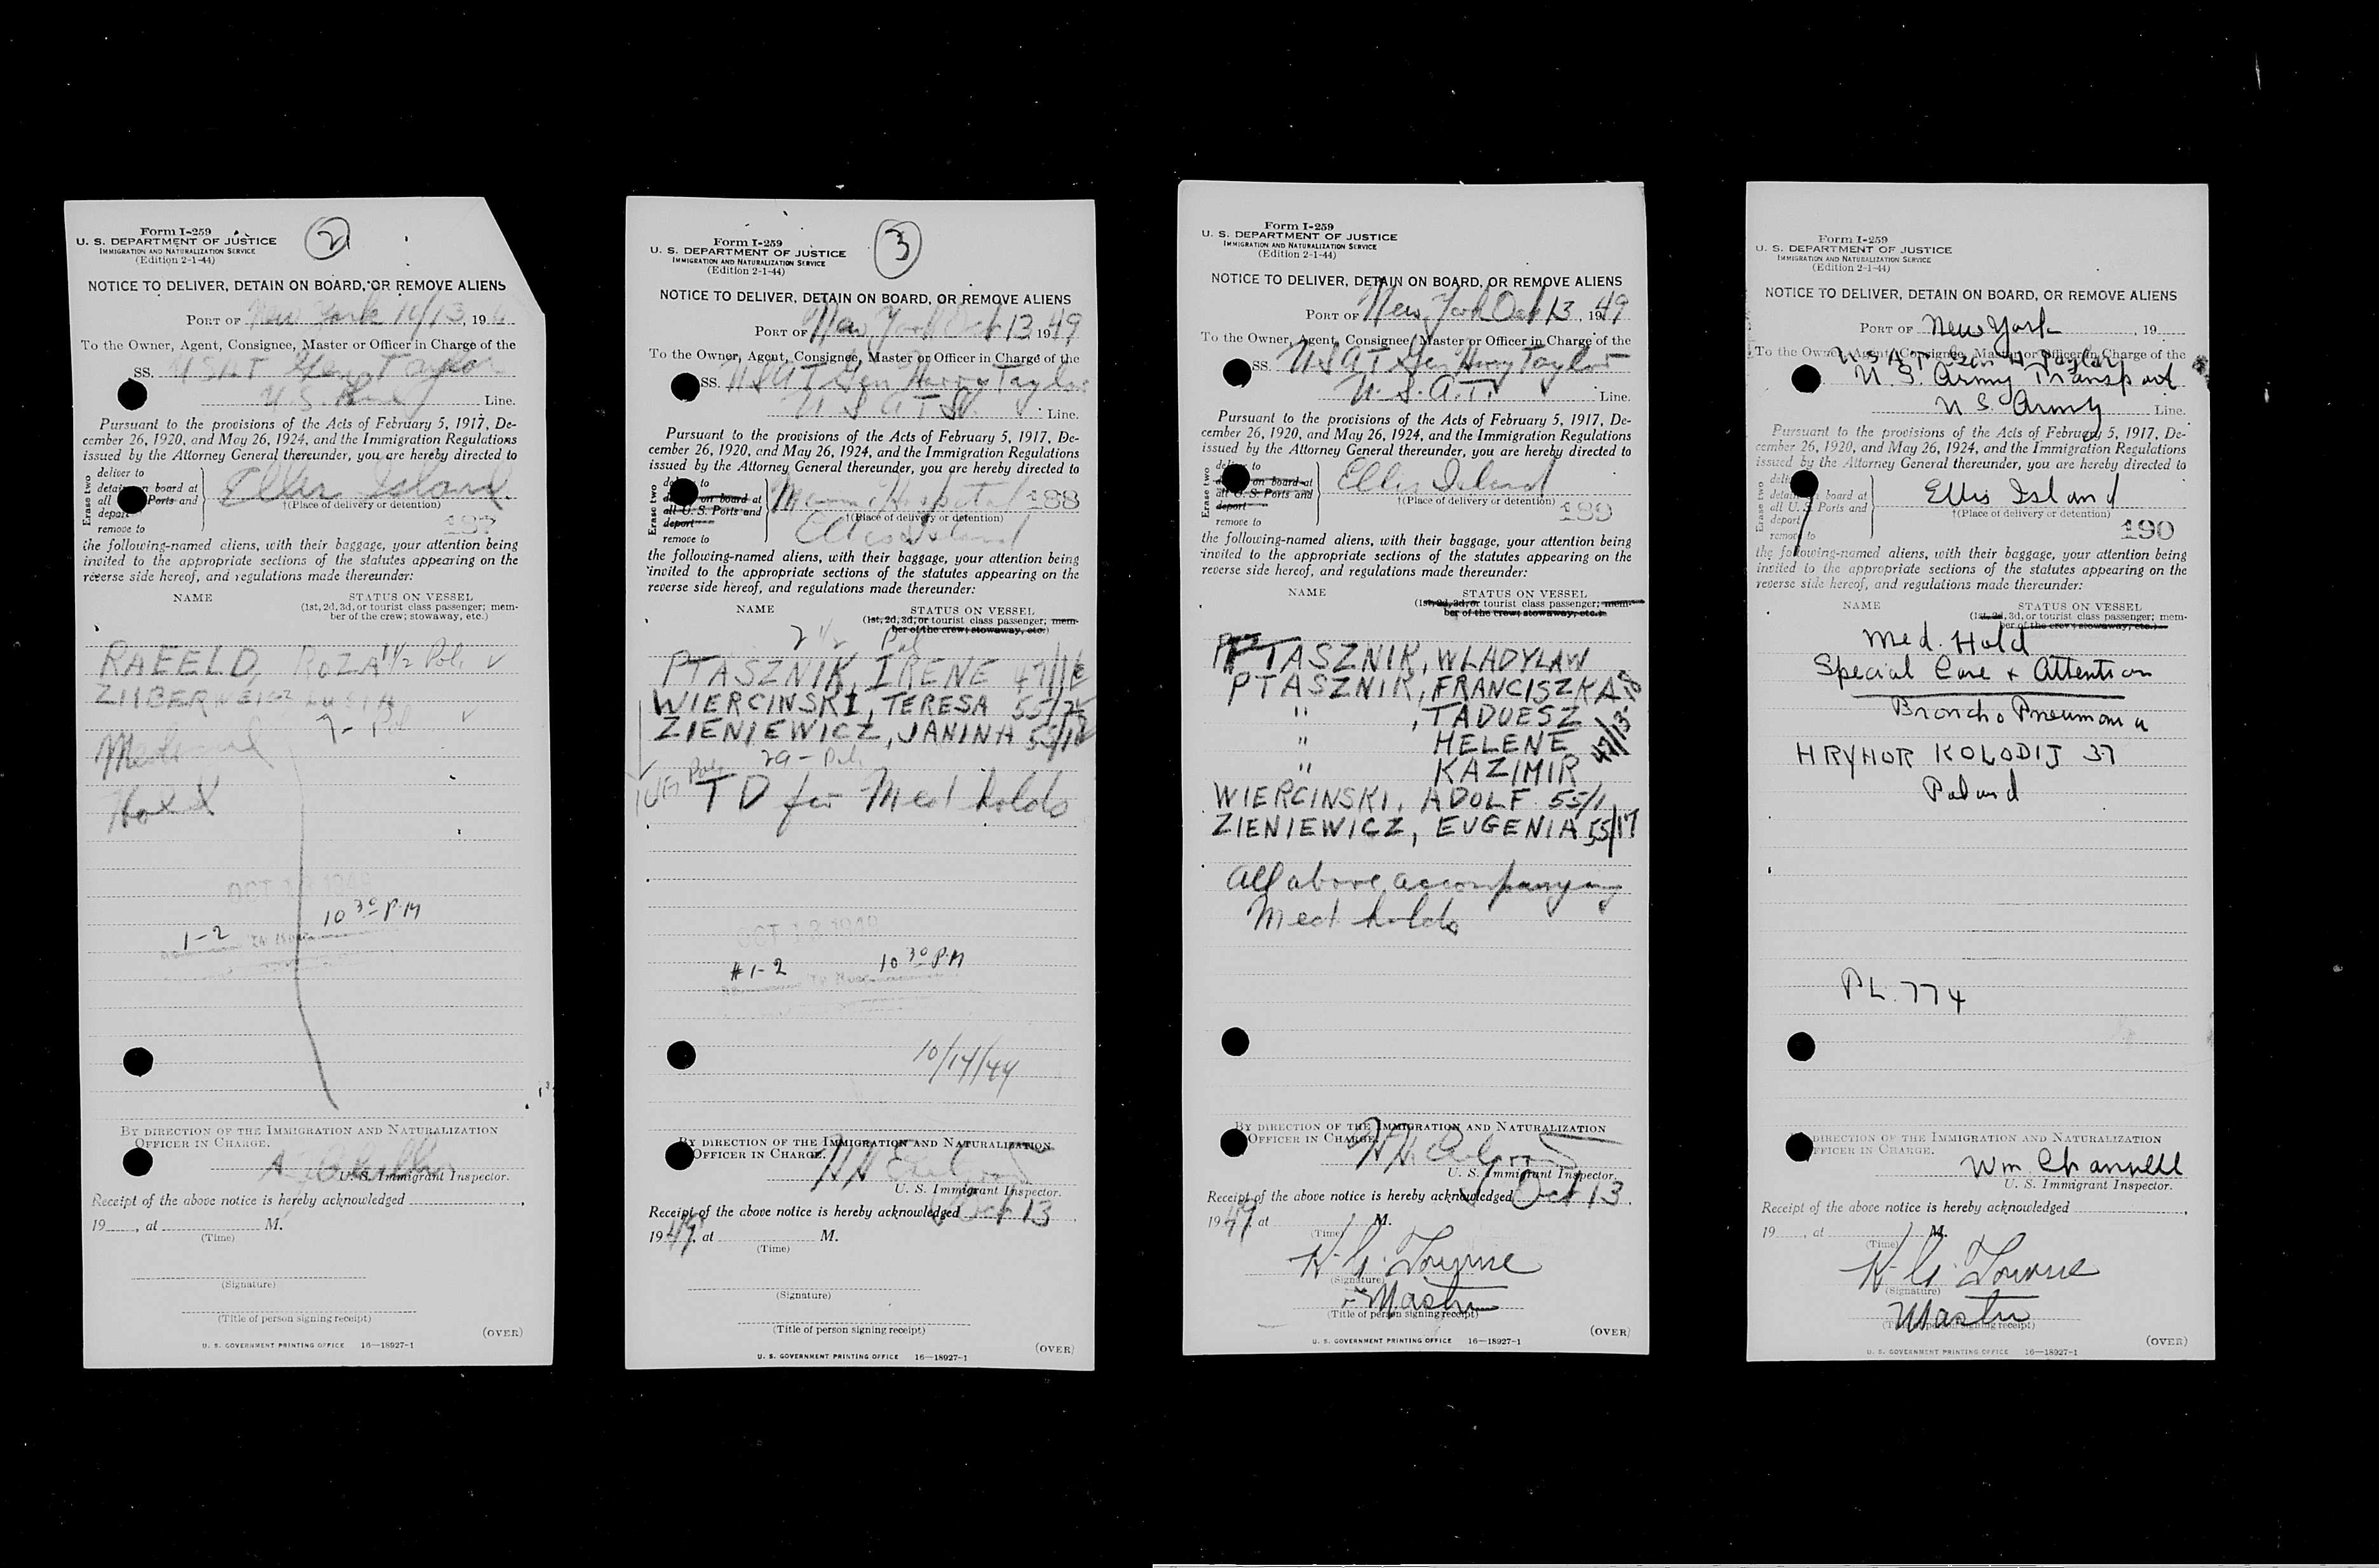 Form I-259
U. S. DEPARTMENT OF JUSTICE
IMMIGRATION AND NATURALIZATION SERVICE
(Edition 2-1-44)
2
NOTICE TO DELIVER, DETAIN ON BOARD, OR REMOVE ALIENS
PORT OF New York 10/13, 19
To the Owner, Agent, Consignee, Master or Officer in Charge of the
SS. USAT Gen Taylor
U.S. Line.
Pursuant to the provisions of the Acts of February 5, 1917, De-
cember 26, 1920, and May 26, 1924, and the Immigration Regulations
issued by the Attorney General thereunder, you are hereby directed to
Erase two
deliver to
detain on board at
all Ports and
deport
remove to
Ellis Island
†(Place of delivery or detention)
187
the following-named aliens, with their baggage, your attention being
invited to the appropriate sections of the statutes appearing on the
reverse side hereof, and regulations made thereunder:
NAME STATUS ON VESSEL
(1st, 2d, 3d, or tourist class passenger; mem-
ber of the crew; stowaway, etc.)
RAFELD, ROZA 1 1/2 Pol. ✓
7 - Pol ✓
Medical
Hold
OCT 13 1949
1-2 10 30 P.M
BY DIRECTION OF THE IMMIGRATION AND NATURALIZATION
OFFICER IN CHARGE.
U. S. Immigrant Inspector.
Receipt of the above notice is hereby acknowledged
19 , at M.
(Time)
(Signature)
(Title of person signing receipt)
(OVER)
U. S. GOVERNMENT PRINTING OFFICE 16—18927-1
Form I-259
U. S. DEPARTMENT OF JUSTICE
IMMIGRATION AND NATURALIZATION SERVICE
(Edition 2-1-44)
3
NOTICE TO DELIVER, DETAIN ON BOARD, OR REMOVE ALIENS
PORT OF New York Oct 13 1949
To the Owner, Agent, Consignee, Master or Officer in Charge of the
SS. USAT Gen Harry Taylor
Line.
Pursuant to the provisions of the Acts of February 5, 1917, De-
cember 26, 1920, and May 26, 1924, and the Immigration Regulations
issued by the Attorney General thereunder, you are hereby directed to
Erase two
to
on board at
all U. S. Ports and
deport
remove to
Hospital 188
†(Place of delivery or detention)
Ellis Island
the following-named aliens, with their baggage, your attention being
invited to the appropriate sections of the statutes appearing on the
reverse side hereof, and regulations made thereunder:
NAME STATUS ON VESSEL
(1st, 2d, 3d, or tourist class passenger; mem-
ber of the crew; stowaway, etc.)
2 1/2 Pol
PTASZNIK, IRENE 47/
WIERCINSKI, TERESA 55/
ZIENIEWICZ, JANINA 55/
Pol. 29 - Pol.
TD for Med holds
OCT 13 1949
# 1-2 10 30 P.M
BY DIRECTION OF THE IMMIGRATION AND NATURALIZATION
OFFICER IN CHARGE.
U. S. Immigrant Inspector.
Receipt of the above notice is hereby acknowledged Oct 13
1949, at M.
(Time)
(Signature)
(Title of person signing receipt)
(OVER)
U. S. GOVERNMENT PRINTING OFFICE 16—18927-1
Form I-259
U. S. DEPARTMENT OF JUSTICE
IMMIGRATION AND NATURALIZATION SERVICE
(Edition 2-1-44)
NOTICE TO DELIVER, DETAIN ON BOARD, OR REMOVE ALIENS
PORT OF New York Oct 13, 1949
To the Owner, Agent, Consignee, Master or Officer in Charge of the
SS. USAT Gen Harry Taylor
U.S.A.T. Line.
Pursuant to the provisions of the Acts of February 5, 1917, De-
cember 26, 1920, and May 26, 1924, and the Immigration Regulations
issued by the Attorney General thereunder, you are hereby directed to
Erase two
to
on board at
all U. S. Ports and
deport
remove to
Ellis Island
†(Place of delivery or detention)
189
the following-named aliens, with their baggage, your attention being
invited to the appropriate sections of the statutes appearing on the
reverse side hereof, and regulations made thereunder:
NAME STATUS ON VESSEL
(1st, 2d, 3d, or tourist class passenger; mem-
ber of the crew; stowaway, etc.)
PTASZNIK, WLADYLAW
PTASZNIK, FRANCISZKA
" , TADUESZ
" HELENE
" KAZIMIR
47/13-18
WIERCINSKI, ADOLF 55/1
ZIENIEWICZ, EUGENIA 55/17
All above accompanying
Med holds
BY DIRECTION OF THE IMMIGRATION AND NATURALIZATION
OFFICER IN CHARGE.
U. S. Immigrant Inspector.
Receipt of the above notice is hereby acknowledged Oct 13.
1949, at M.
(Time)
(Signature)
Master
(Title of person signing receipt)
(OVER)
U. S. GOVERNMENT PRINTING OFFICE 16—18927-1
Form I-259
U. S. DEPARTMENT OF JUSTICE
IMMIGRATION AND NATURALIZATION SERVICE
(Edition 2-1-44)
NOTICE TO DELIVER, DETAIN ON BOARD, OR REMOVE ALIENS
PORT OF New York , 19
To the Owner, Agent, Consignee, Master or Officer in Charge of the
USAT Gen H Taylor
U.S. Army Transport
U S. Army Line.
Pursuant to the provisions of the Acts of February 5, 1917, De-
cember 26, 1920, and May 26, 1924, and the Immigration Regulations
issued by the Attorney General thereunder, you are hereby directed to
Erase two
board at
all U. S. Ports and
deport
remove to
Ellis Island
†(Place of delivery or detention)
190
the following-named aliens, with their baggage, your attention being
invited to the appropriate sections of the statutes appearing on the
reverse side hereof, and regulations made thereunder:
NAME STATUS ON VESSEL
(1st, 2d, 3d, or tourist class passenger; mem-
ber of the crew; stowaway, etc.)
Med. Hold
Special Care + Attention
Broncho Pneumonia
HRYHOR KOLODIJ 37
Poland
PL. 774
DIRECTION OF THE IMMIGRATION AND NATURALIZATION
OFFICER IN CHARGE.
Wm Channell
U. S. Immigrant Inspector.
Receipt of the above notice is hereby acknowledged
19 , at M.
(Time)
(Signature)
Master
(Title of person signing receipt)
(OVER)
U. S. GOVERNMENT PRINTING OFFICE 16—18927-1